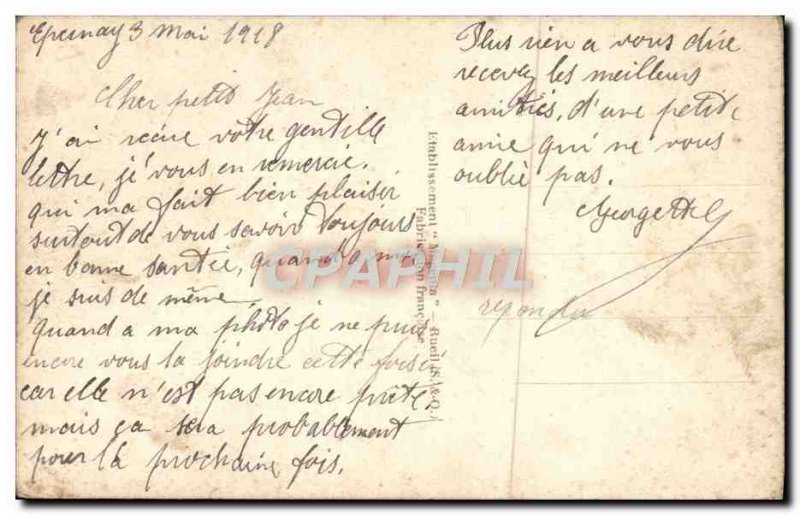 Epernay 3 Mai 1918
Cher petit Jean
J'ai recue votre gentille
lettre, je vous en remercie.
qui ma fait bien plaisir
surtout de vous savoir toujours
en bonne santée, quand a moi
je suis de même.
quand a ma photo je ne puis
encore vous la joindre cette fois ci
car elle n'est pas encore prète
mais ça sera probablement
pour la prochaine fois.
Plus rien a vous dire
recevez les meilleurs
amitiés, d'une petite
amie qui ne vous
oublie pas.
Georgette
repondu
Etablissement " " - Rueil (S.-&-O.)
Fabrication française
CPAPHIL